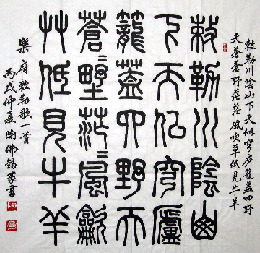 敕勒川陰山下天似穹廬籠蓋四野
天蒼蒼野茫茫風吹草低見牛羊
敕勒川陰山
下天似穹廬
籠蓋四野天
蒼野茫風龡
艸低見牛羊
樂府敕勒歌一首
丙戌仲夏書